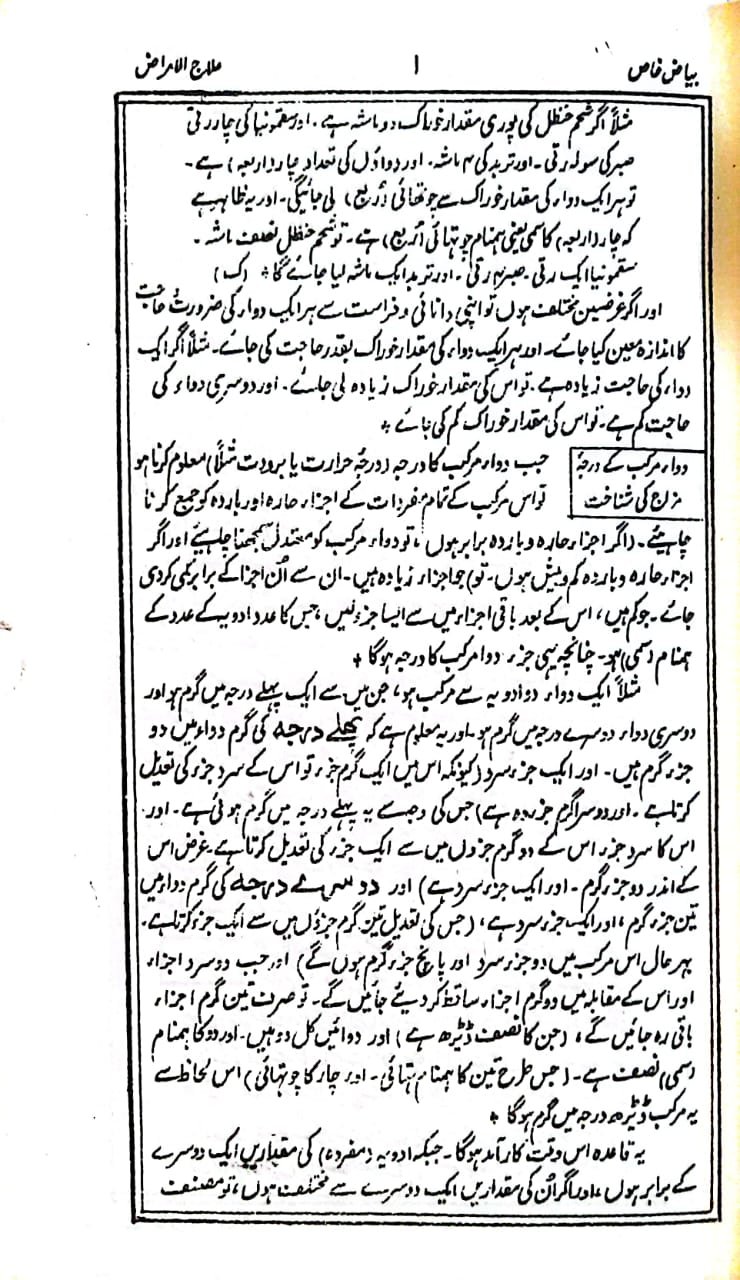 بیاض خاص ۱ علاج الامراض
مثلاً اگر شحم حنظل کی پوری مقدار خوراک دو ماشہ ہے ۔ اور سقمونیا کی چار رتی
صبر کی سولہ رتی ۔ اور تربد کی ۴ ماشہ ۔ اور دواؤں کی تعداد چار (اربعہ) ہے ۔
تو ہر ایک دواء کی مقدار خوراک سے چوتھائی (ربع) لی جائیگی ۔ اور یہ ظاہر ہے
کہ چار (اربعہ) کا سمی یعنی ہمنام چوتہائی (ربع) ہے ۔ تو شحم حنظل نصف ماشہ ۔
سقمونیا ایک رتی ۔ صبر ۴ رتی ۔ اور تربد ایک ماشہ لیا جائے گا * (ک)
اور اگر غرضیں مختلف ہوں تو اپنی دانائی و فراست سے ہر ایک دوا کی ضرورت و حاجت
کا اندازہ معین کیا جائے ۔ اور ہر ایک دواء کی مقدار خوراک بقدر حاجت کی جائے ۔ مثلاً اگر ایک
دواء کی حاجت زیادہ ہے ۔ تو اس کی مقدار خوراک زیادہ لی جائے ۔ اور دوسری دواء کی
حاجت کم ہے ۔ تو اس کی مقدار خوراک کم کی جائے *
دواء مرکب کے درجۂ
مزاج کی شناخت
جب دواء مرکب کا درجہ (درجۂ حرارت یا برودت مثلاً) معلوم کرنا ہو
تو اس مرکب کے تمام مفردات کے اجزاء حارہ اور باردہ کو جمع کرنا
چاہیئے ۔ (اگر اجزاء حارہ و باردہ برابر ہوں ، تو دواء مرکب کو معتدل سمجھنا چاہیے اور اگر
اجزاء حارہ و باردہ کم و بیش ہوں ۔ تو) جو اجزاء زیادہ ہیں ۔ ان سے اُن اجزا کے برابر کمی کردی
جائے ۔ جو کم ہیں ، اس کے بعد باقی اجزاء میں سے ایسا جزء لیں ، جس کا عدد ادویہ کے عدد کے
ہمنام (سمی) ہو ۔ چنانچہ یہی جزء دوا مرکب کا درجہ ہوگا *
مثلاً ایک دواء دو ادویہ سے مرکب ہو ، جن میں سے ایک پہلے درجہ میں گرم ہو اور
دوسری دواء دوسرے درجہ میں گرم ہو ۔ اور یہ معلوم ہے کہ پہلے درجہ کی گرم دواء میں دو
جزء گرم ہیں ۔ اور ایک جزء سرد (کیونکہ اس میں ایک گرم جزء تو اس کے سرد جزء کی تعدیل
کرتا ہے ۔ اور دوسرا گرم جزء وہ ہے) جس کی وجہ سے یہ پہلے درجہ میں گرم ہوئی ہے ۔ اور
اس کا سرد جزء اس کے دو گرم جزوں میں سے ایک جزء کی تعدیل کرتا ہے ۔ غرض اس
کے اندر دو جزء گرم ۔ اور ایک جزء سرد ہے) اور دوسرے درجہ کی گرم دواء میں
تین جزء گرم ، اور ایک جزء سرد ہے ، (جس کی تعدیل تین گرم جزؤں میں سے ایک جزء کرتا ہے ۔
بہر حال اس مرکب میں دو جزء سرد اور پانچ جزء گرم ہوں گے) اور جب دو سرد اجزاء
اور اس کے مقابلہ میں دو گرم اجزاء ساقط کر دیئے جائیں گے ۔ تو صرف تین گرم اجزاء
باقی رہ جائیں گے ، (جن کا نصف ڈیڑھ ہے) اور دوائیں کل دو ہیں ۔ اور دو کا ہمنام
(سمی) نصف ہے ۔ (جس طرح تین کا ہمنام تہائی ۔ اور چار کا چوتہائی) اس لحاظ سے
یہ مرکب ڈیڑھ درجہ میں گرم ہوگا *
یہ قاعدہ اس وقت کارآمد ہوگا ۔ جبکہ ادویہ (مفردہ) کی مقداریں ایک دوسرے
کے برابر ہوں ، اور اگر اُن کی مقداریں ایک دوسرے سے مختلف ہوں ، تو مصنف